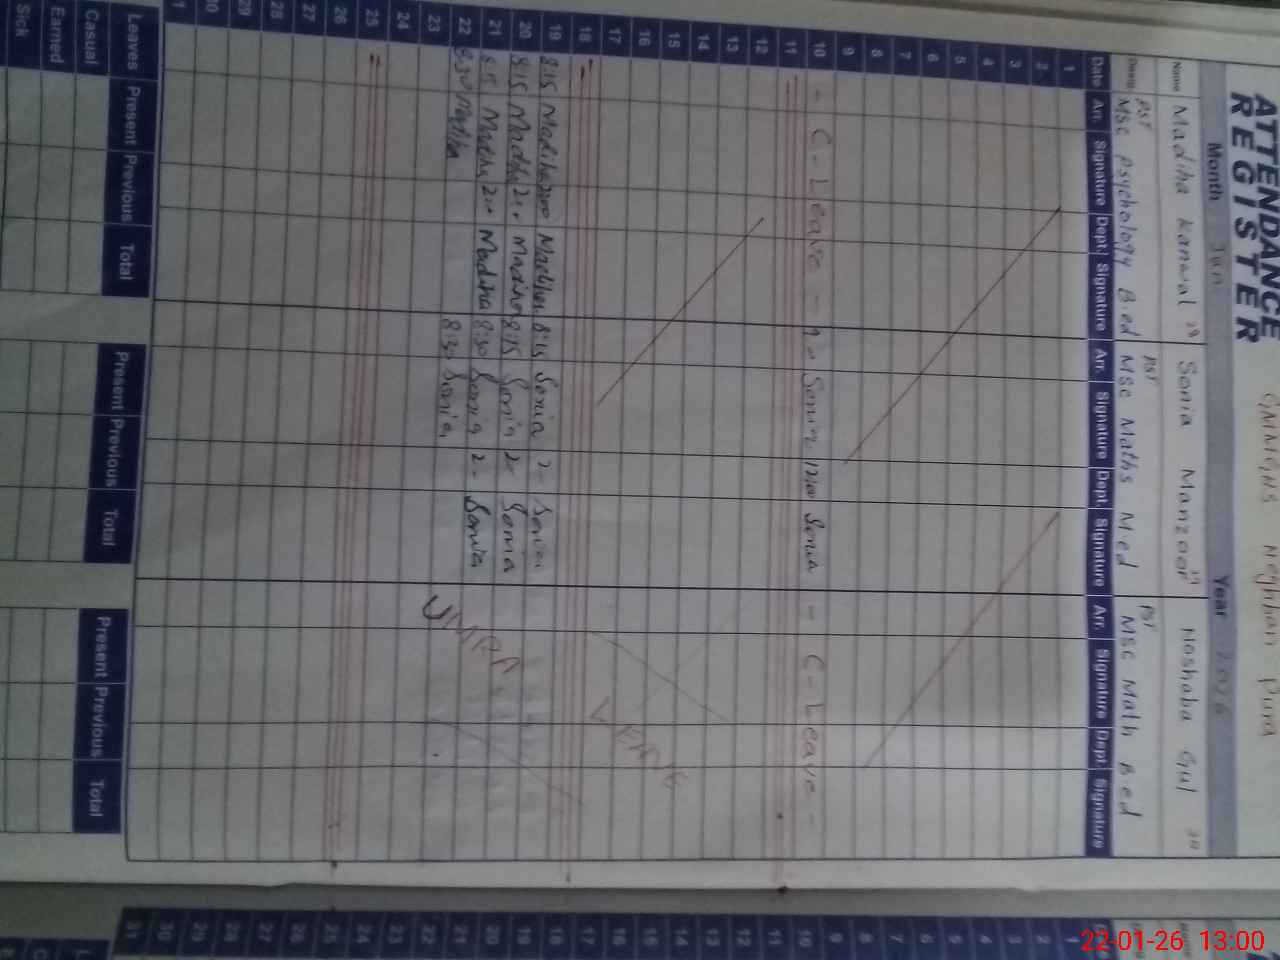 ATTENDANCE
REGISTER
GMMGHS Neghban Pura
Month Jan Year 2026
Name Madiha Kanwal Sonia Manzoor Noshaba Gul
PST PST PST
MSc Psychology B.ed MSc Maths M.ed MSc Math B.ed
Date Arr. Signature Dept. Signature Arr. Signature Dept. Signature Arr. Signature Dept. Signature
1
2
3
4
5
6
7
8
9
10 - C-Leave - Sonia Sonia - C-Leave -
11
12
13
14
15
16
17
18
19 8:15 Madiha Madiha 8:15 Sonia 2- Sonia
20 8:15 Madiha Madiha 8:15 Sonia Sonia
21 8:15 Madiha Madiha 8:30 Sonia 2- Sonia
22 8:30 Madiha 8:30 Sonia
23
24
25
26
27
28
29
30
UMRA LEAVE
Leaves Present Previous Total Present Previous Total Present Previous Total
Casual
Earned
Sick
1
6
7
8
9
10
11
12
13
14
15
16
17
18
19
20
21
22
25
26
28
29
30
31
22-01-26 13:00